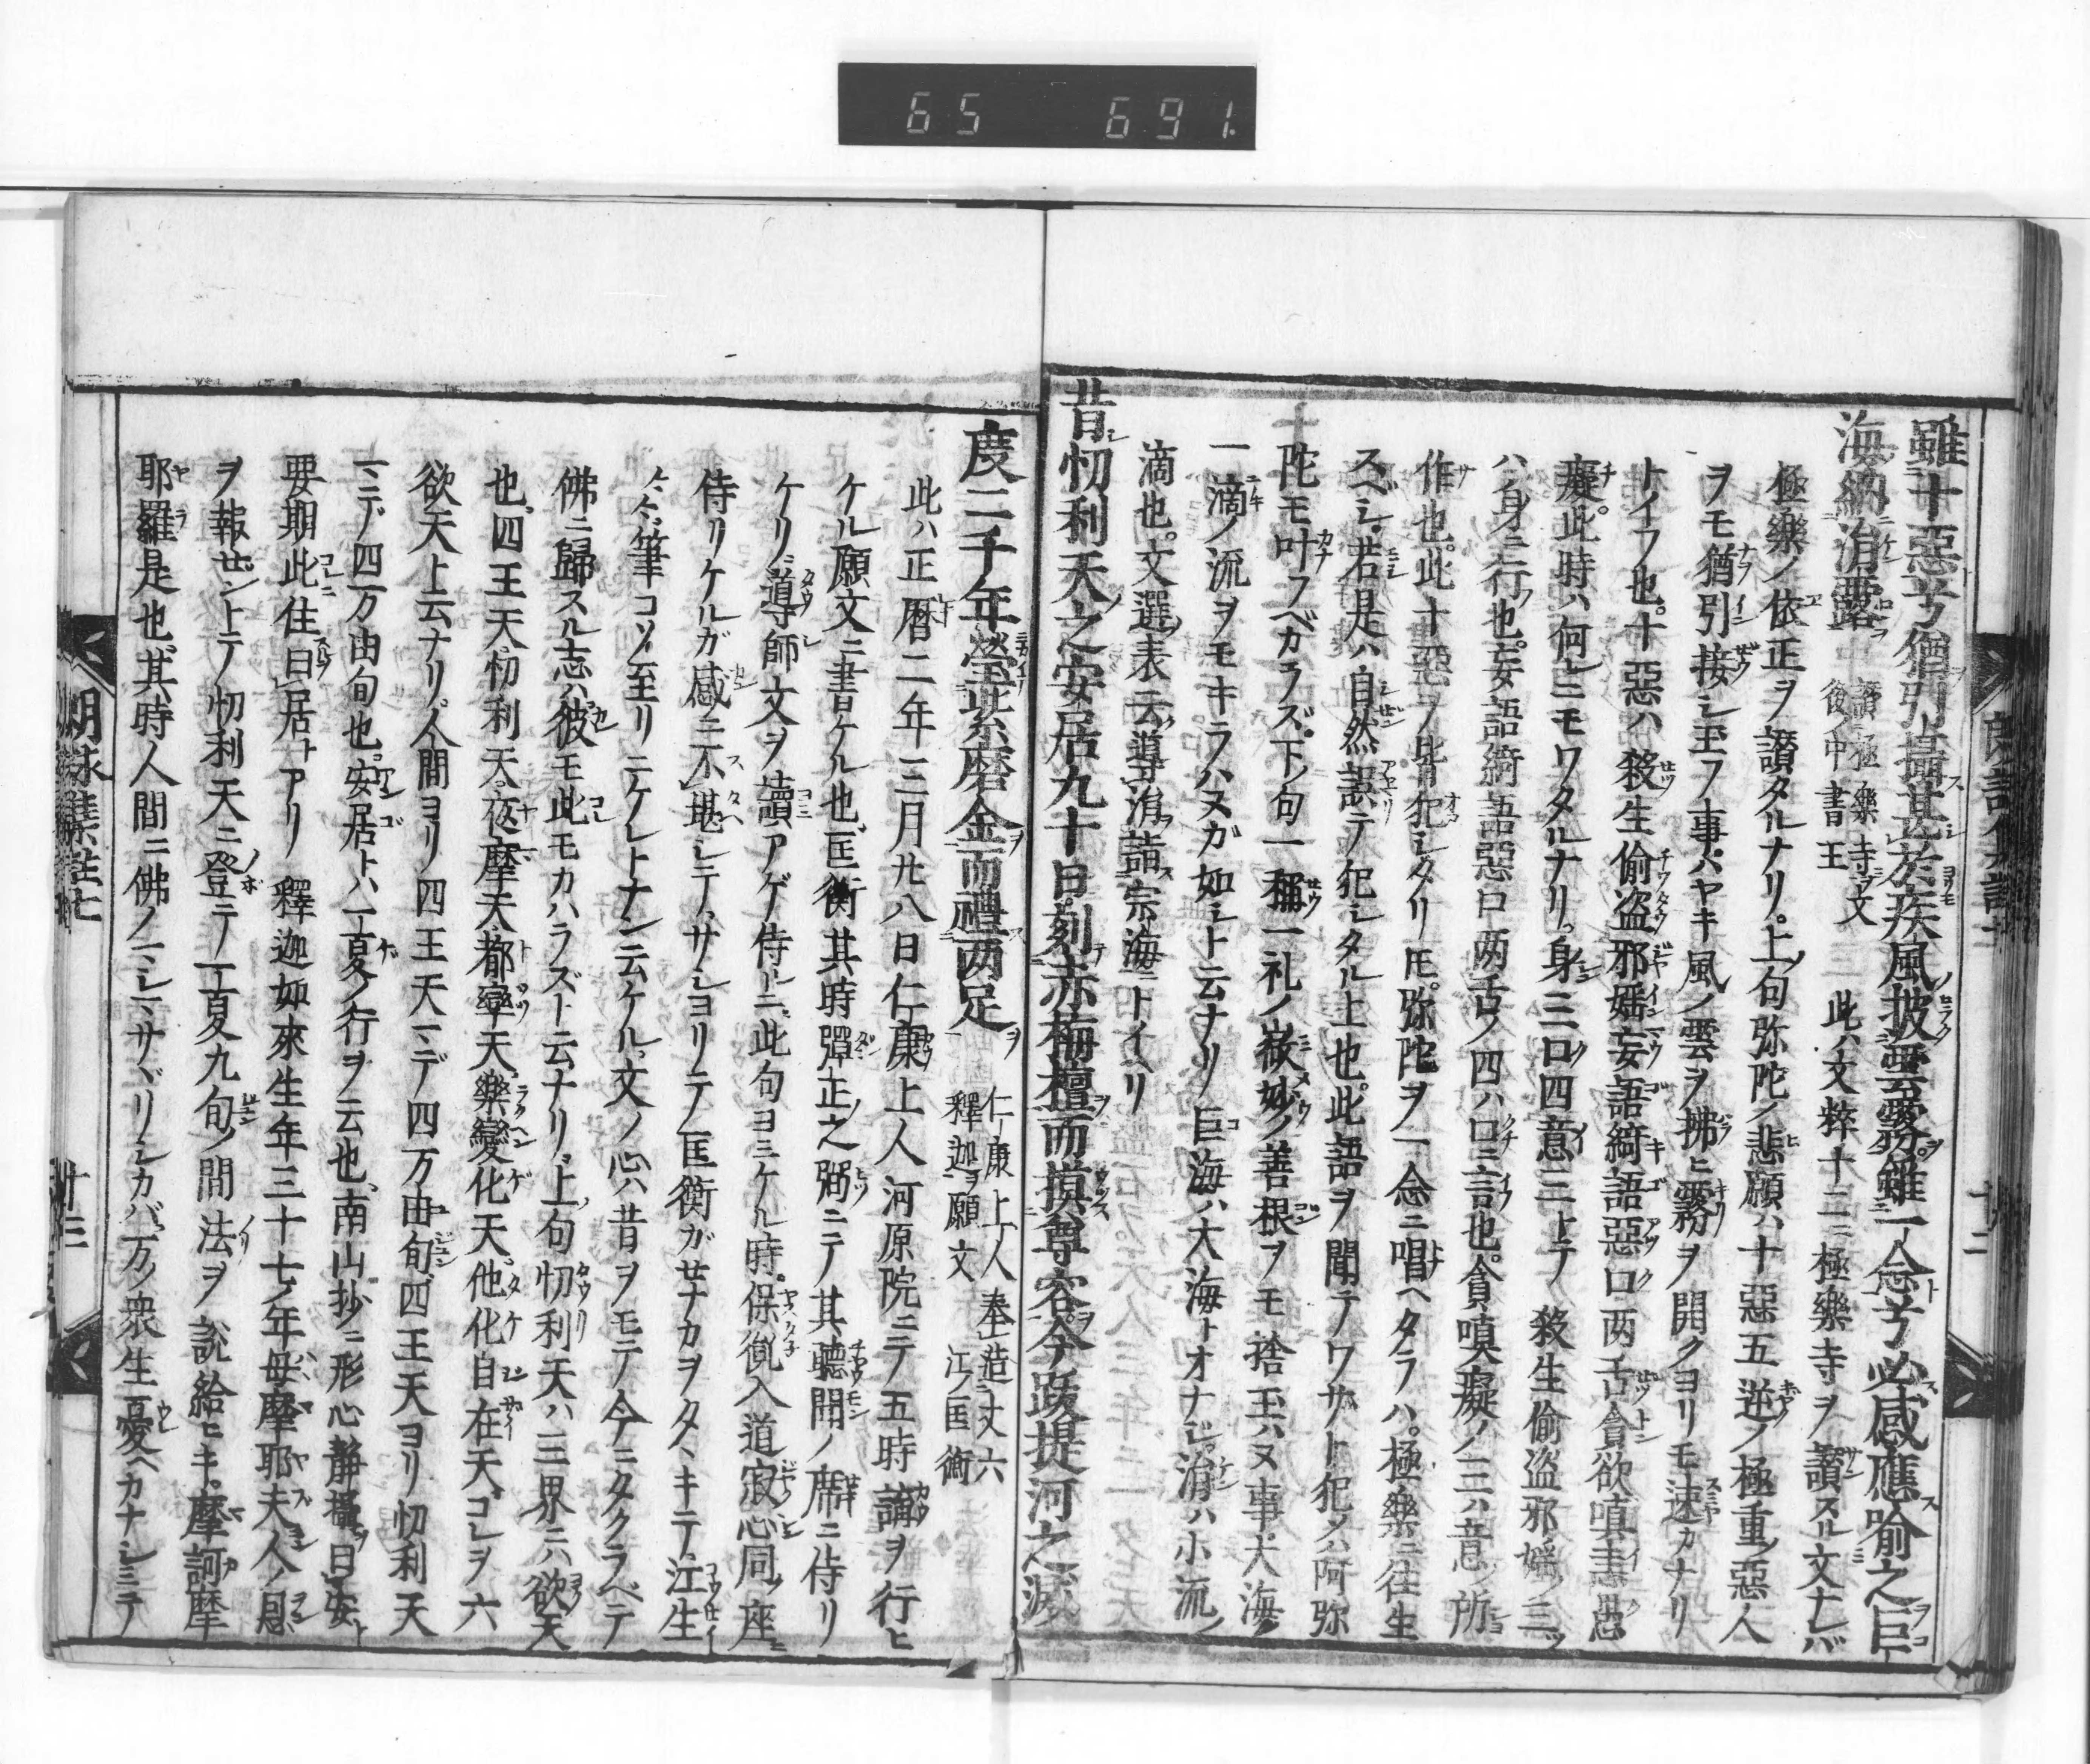 65 691.
雖十惡兮猶引攝甚於疾風披雲霧雖一念兮必感應喩之巨
海納涓露 讚極樂寺文 後中書王 此ハ文粹十二ニ極樂寺ヲ讚スル文ナレバ
極樂ノ依正ヲ讚タルナリ。上ノ句弥陀ノ悲願ハ十惡五逆ノ極重ノ惡人
ヲモ猶引接シ玉フ事ハヤキ風ノ雲ヲ拂ヒ霧ヲ開クヨリモ速カナリ
トイフ也。十惡ハ殺生偸盗邪婬妄語綺語惡口両舌貪欲嗔恚愚
癡。此時ハ何レニモワタルナリ。身三口四意三トテ殺生偸盗邪婬ノ三ツ
ハ身ニ行フ也。妄語綺語惡口両舌ノ四ハ口ニ言也。貪嗔癡ノ三ハ意ノ所
作也。此十惡ヲ皆犯シタリ圧。弥陀ヲ一念ニ唱ヘタラハ。極樂ニ往生
スベシ。若是ハ自然誤テ犯シタル上也。此語ヲ聞テワザト犯メハ阿弥
陀モ叶フベカラズ。下ノ句一稱一礼ノ㣲妙ノ善根ヲモ捨玉ハヌ事大海ノ
一滴ノ流ヲモキラハヌガ如シト云ナリ巨海ハ大海トオナジ。涓ハ小流ノ
滴也。文選ノ表云導涓詣宗海ニトイヘリ
昔忉利天之安居九十日刻赤栴檀而摸尊容今跋提河之滅
度二千年瑩紫磨金而禮両足 仁康上人奉造丈六 釋迦ヲ願文 江ノ匡衡
此ハ正暦二年三月廿八日仁康上人河原院ニテ五時講ヲ行ヒ
ケル願文ニ書ケル也。匡衡其時彈正之弼ニテ其聽聞ノ席ニ侍リ
ケリ。導師文ヲ讀アゲ侍ルニ。此句ヨミケル時。保胤入道寂心同ク座ニ
侍リケルガ感ニ不堪シテ。サシヨリテ匡衡ガセナカヲタヽキテ。江生
〱筆コソ至リニケレトナン云ケル。文ノ心ハ昔ヲモテ今ニタクラベテ
佛ニ歸スル志ハ彼モ此モカハラズト云ナリ。上ノ句忉利天ハ三界ニハ欲天
也。四王天忉利天夜摩天都率天樂變化天。他化自在天。コレヲ六
欲天上云ナリ。人間ヨリ四王天マデ四万由旬。四王天ヨリ忉利天
マデ四万由旬也。安居トハ一夏ノ行ヲ云也。南山抄ニ形心静攝ヲ日安ト
要期此住曰居トアリ 釋迦如來生年三十七ノ年母摩耶夫人ノ恩
ヲ報ゼントテ忉利天ニ登ニテ一夏九旬ノ間法ヲ説給ヒキ。摩訶摩
耶羅是也。其時人間ニ佛ノマシマサヾリシカバ。万ノ衆生憂ヘカナシミテ
朗詠集註七
十三